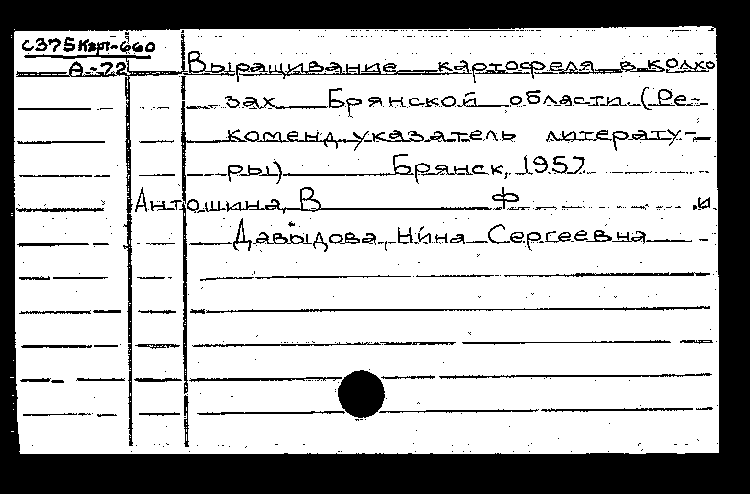 С375Карт-660
А-72
Выращивание картофеля в колхо
зах Брянской области. (Ре-
коменд. указатель литерату-
ры) Брянск, 1957
Антошина, В Ф и
Давыдова, Нина Сергеевна